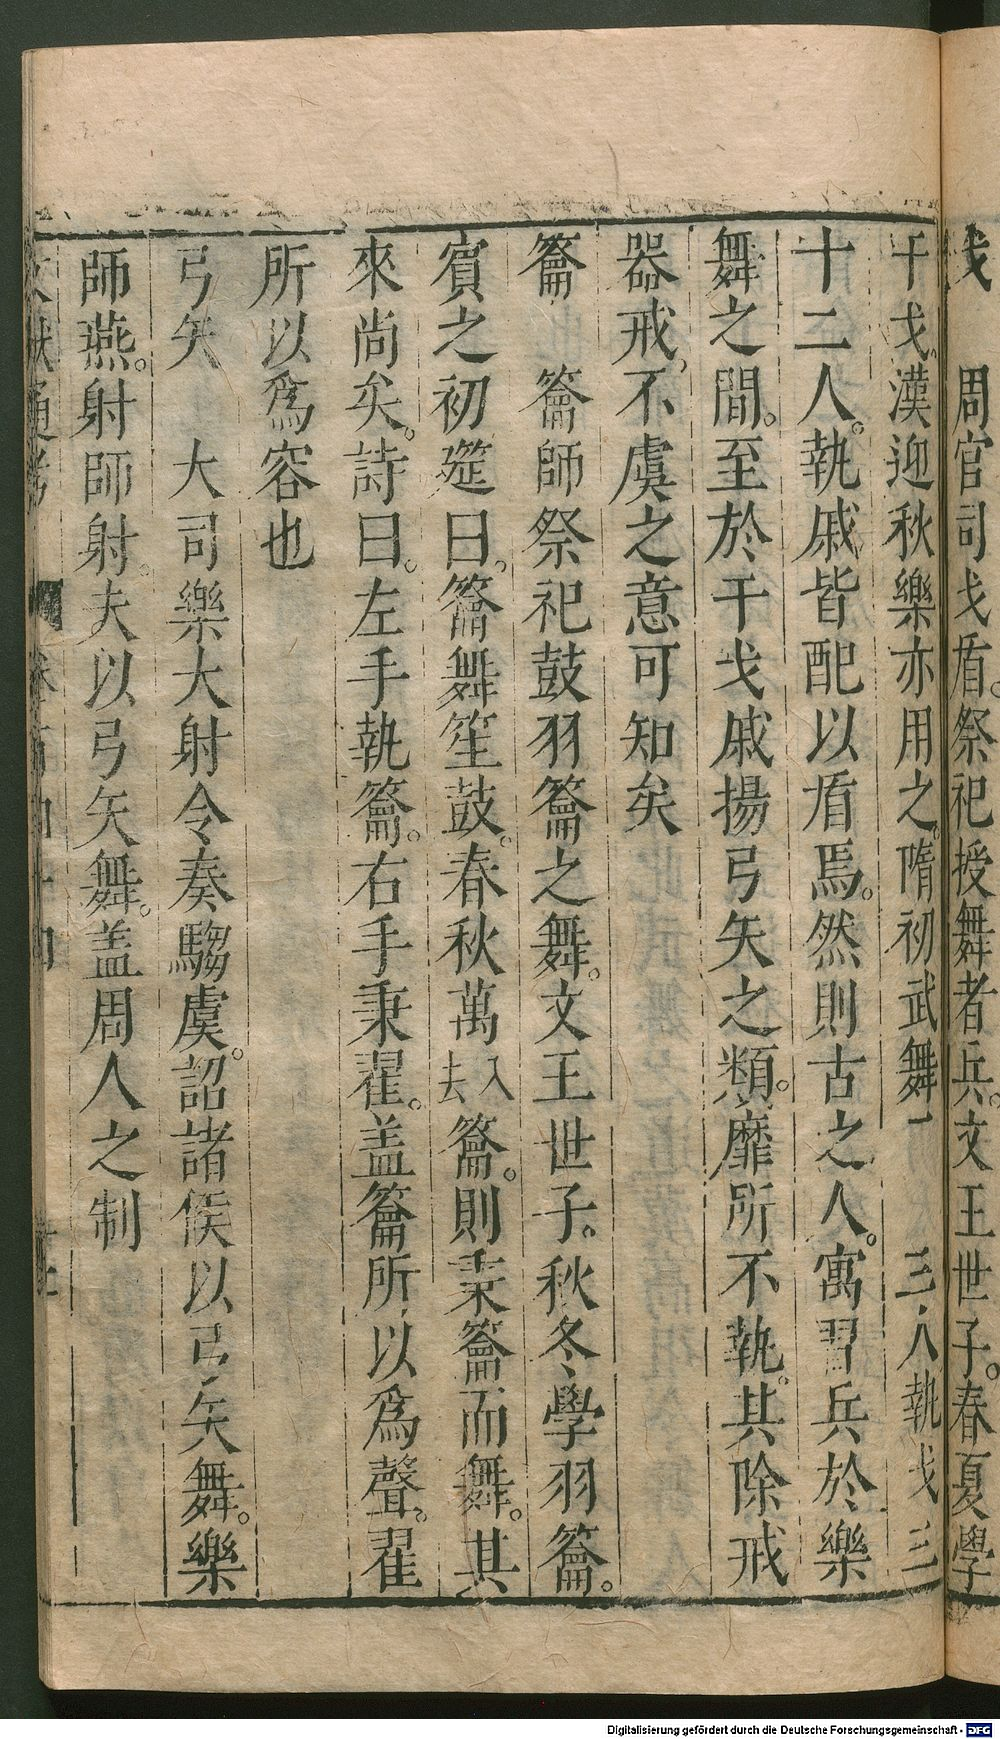 戈　周官司戈盾。祭祀授舞者兵。文王世子。春夏學
干戈。漢迎秋樂亦用之。隋初武舞　三　人執戈三
十二人。執戚皆配以盾焉。然則古之人。寓習兵於樂
舞之間。至於干戈戚揚弓矢之類。靡所不執。其除戎
器戒。不虞之意可知矣
籥　籥師祭祀鼓羽籥之舞。文王世子。秋冬學羽籥。
賓之初筵曰。籥舞笙鼓。春秋萬入去籥。則秉籥而舞。其
來尚矣。詩曰。左手執籥。右手秉翟。盖籥所以爲聲。翟
所以爲容也
弓矢　大司樂大射令奏騶虞。詔諸侯以弓矢舞。樂
師燕。射師射。夫以弓矢舞。盖周人之制
文獻通考
Digitalisierung gefördert durch die Deutsche Forschungsgemeinschaft - DFG